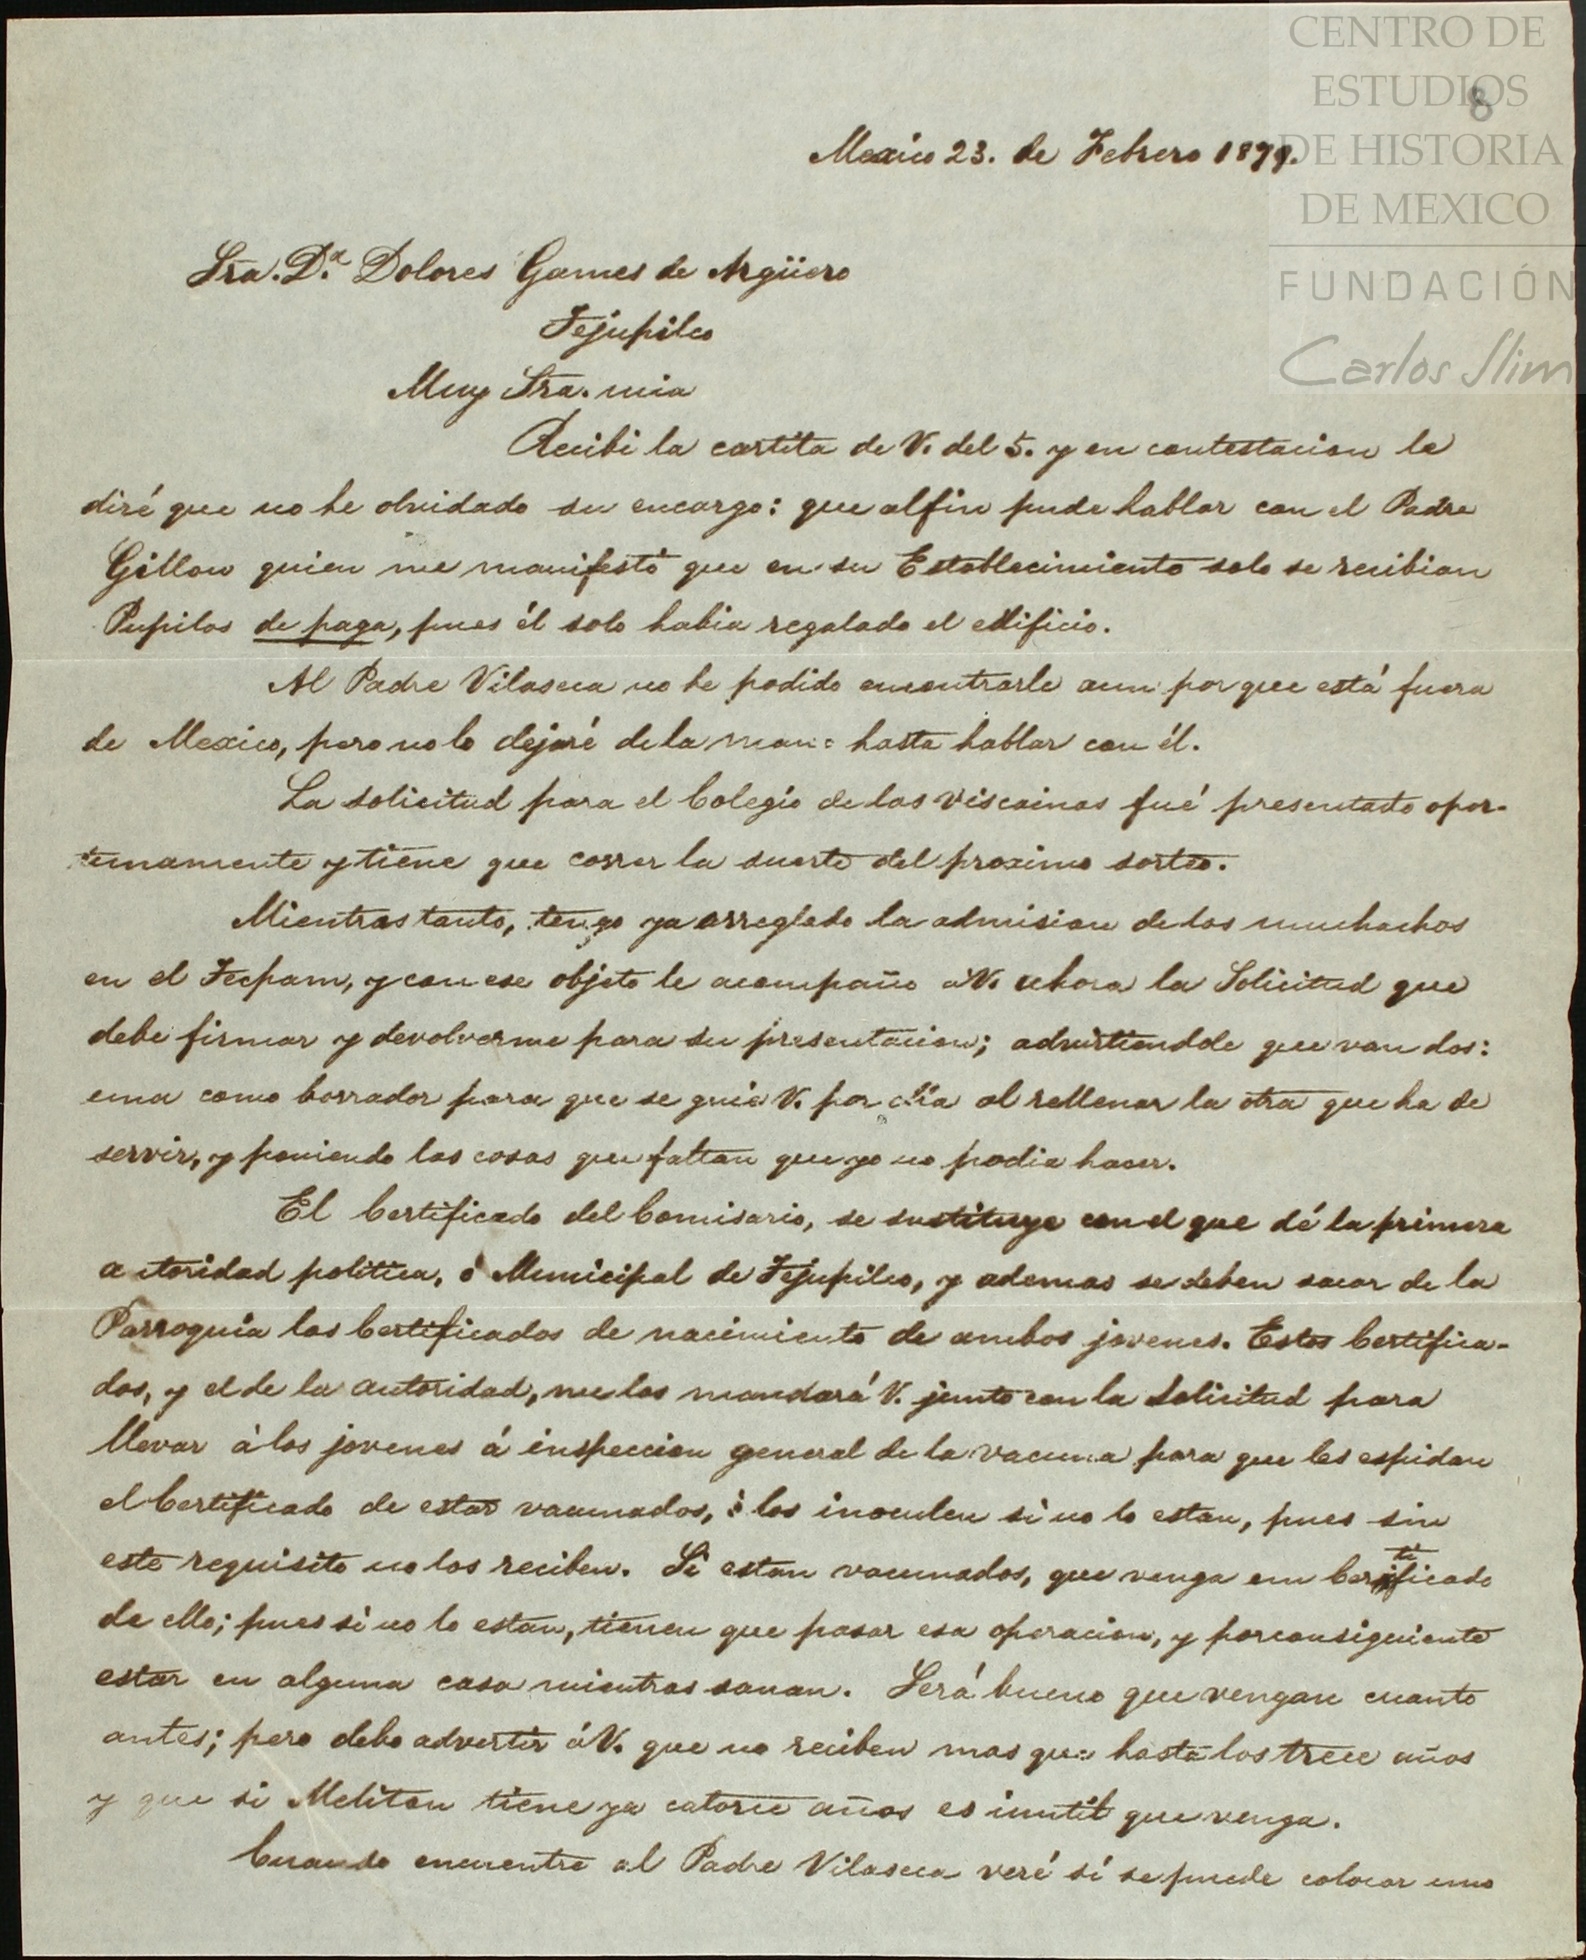 CENTRO DE
ESTUDIOS
DE HISTORIA
DE MEXICO
FUNDACIÓN
Carlos Slim
8
Mexico 23. de Febrero 1879.
Sra. D.ª Dolores Games de Argüero
Tejupilco
Muy Sra. mia
Recibi la cartita de V. del 5. y en contestacion le
diré que no he olvidado su encargo: que alfin pude hablar con el Padre
Gillow quien me manifestó que en su Establecimiento solo se recibian
Pupilos de paga, pues él solo habia regalado el edificio.
Al Padre Vilaseca no he podido encontrarle aun por que está fuera
de Mexico, pero no lo dejaré de la mano hasta hablar con él.
La solicitud para el Colegio de las Viscainas fué presentada opor-
tunamente y tiene que correr la suerte del proximo sorteo.
Mientras tanto, tengo ya arreglado la admision de los muchachos
en el Tecpam, y con ese objeto le acompaño á V. ahora la Solicitud que
debe firmar y devolverme para su presentacion; advirtiendole que van dos:
una como borrador para que se guie V. por ella al rellenar la otra que ha de
servir, y poniendo las cosas que faltan que yo no podia hacer.
El Certificado del Comisario, se sustituye con el que dé la primera
autoridad politica, ó Municipal de Tejupilco, y ademas se deben sacar de la
Parroquia los Certificados de nacimiento de ambos jovenes. Estos Certifica-
dos, y el de la autoridad, me los mandará V. junto con la Solicitud para
llevar á los jovenes á inspeccion general de la vacuna para que les espidan
el Certificado de estar vacunados, ó los inoculen si no lo estan, pues sin
este requisito no los reciben. Si estan vacunados, que venga un Certificado
de ello; pues si no lo estan, tienen que pasar esa operacion, y porconsiguiente
estar en alguna casa mientras sanan. Será bueno que vengan cuanto
antes; pero debo advertir á V. que no reciben mas que hasta los trece años
y que si Meliton tiene ya catorce años es inutil que venga.
Cuando encuentre al Padre Vilaseca veré si se puede colocar uno